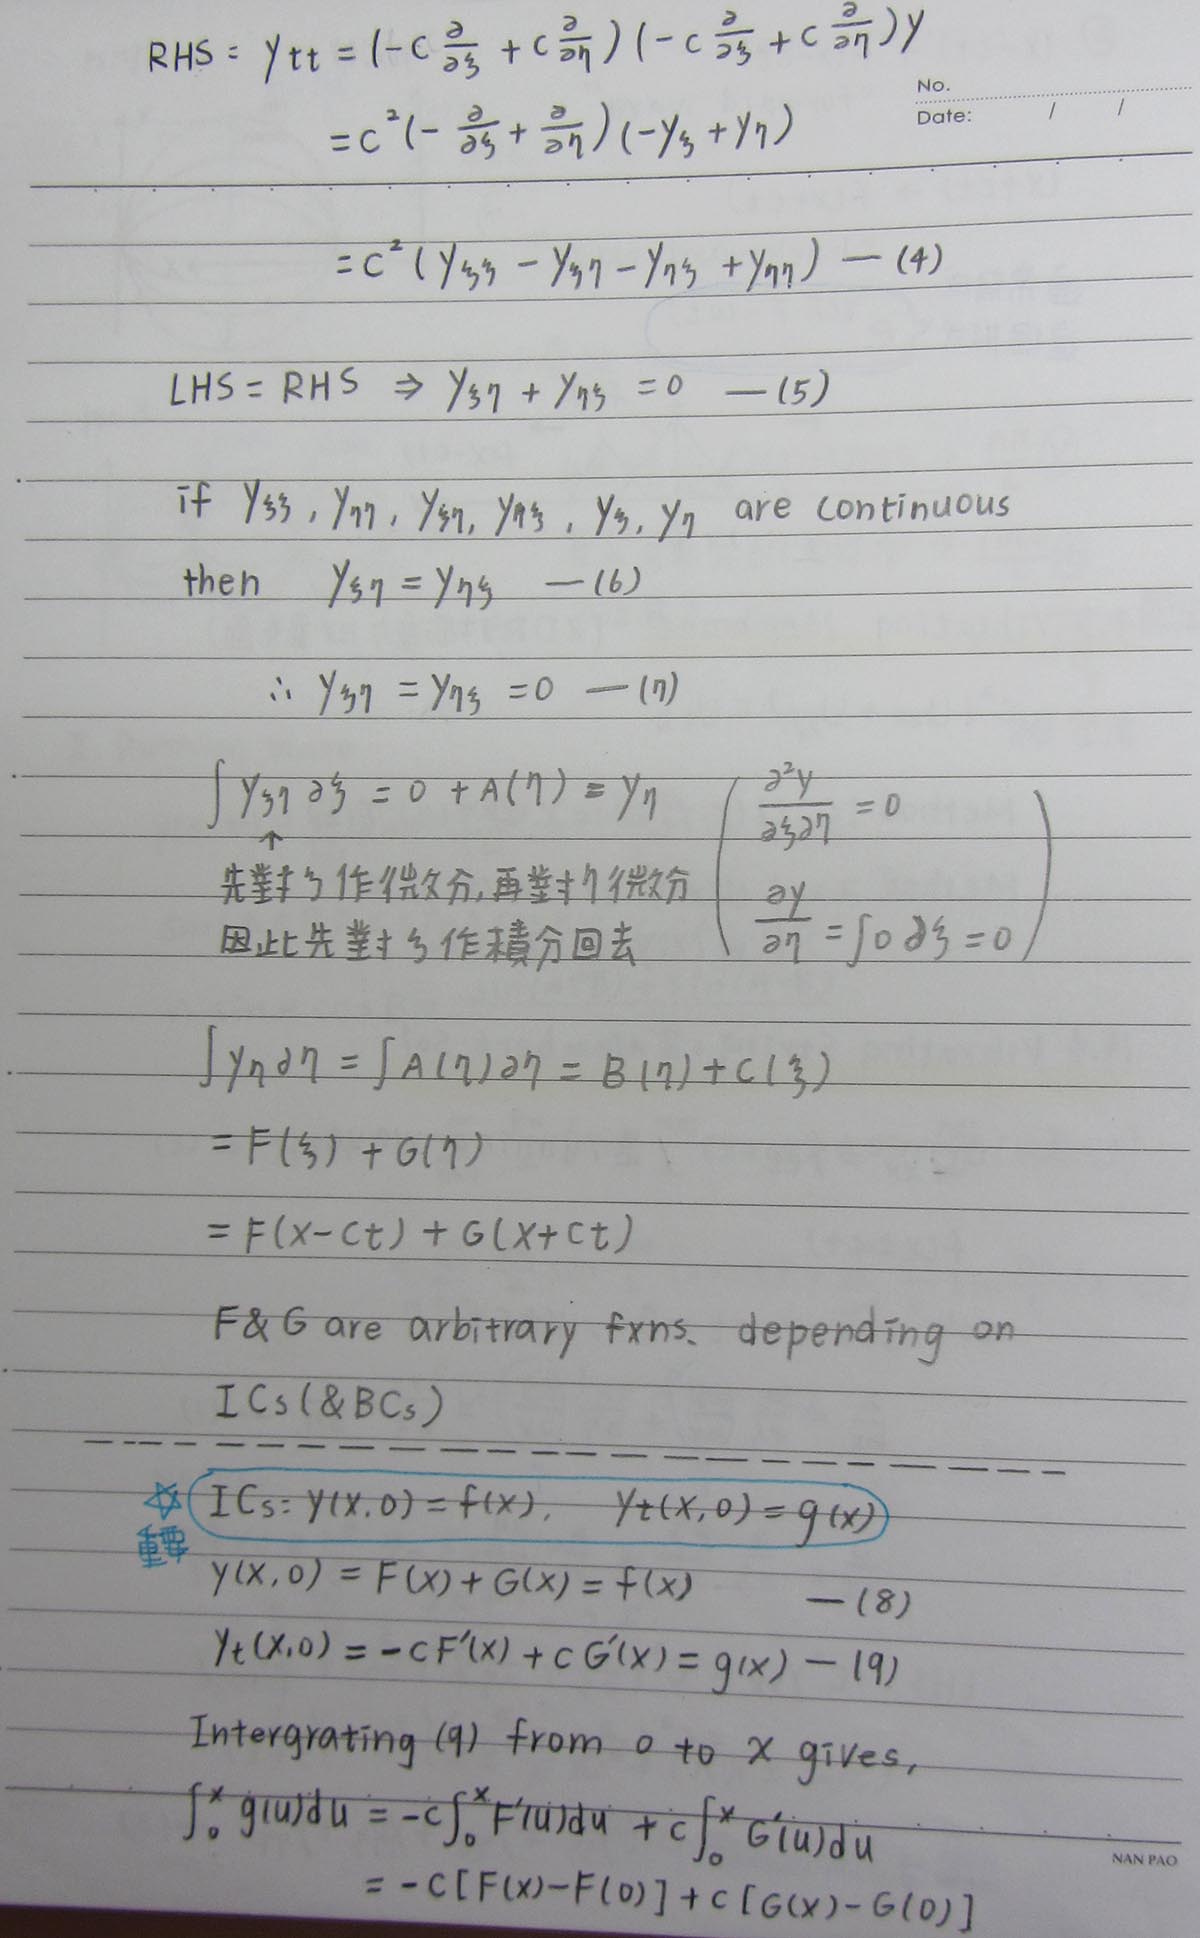 RHS = ytt = (-c ∂/∂ξ + c ∂/∂η)(-c ∂/∂ξ + c ∂/∂η)y
No.
Date: / /
= c²(-∂/∂ξ + ∂/∂η)(-yξ + yη)
= c²(yξξ - yξη - yηξ + yηη) — (4)
LHS = RHS ⇒ yξη + yηξ = 0 — (5)
if yξξ, yηη, yξη, yηξ, yξ, yη are continuous
then yξη = yηξ — (6)
∴ yξη = yηξ = 0 — (7)
∫ yξη ∂ξ = 0 + A(η) = yη ( ∂²y/∂ξ∂η = 0
↑
先對ξ作微分,再對η微分
因此先對ξ作積分回去 ∂y/∂η = ∫0 ∂ξ = 0 )
∫ yη ∂η = ∫ A(η) ∂η = B(η) + C(ξ)
= F(ξ) + G(η)
= F(x-ct) + G(x+ct)
F & G are arbitrary fxns. depending on
ICs (& BCs)
☆ ICs: y(x,0) = f(x), yt(x,0) = g(x)
重要
y(x,0) = F(x) + G(x) = f(x) — (8)
yt(x,0) = -cF'(x) + cG'(x) = g(x) — (9)
Intergrating (9) from 0 to x gives,
∫₀ˣ g(u)du = -c∫₀ˣ F'(u)du + c∫₀ˣ G'(u)du
NAN PAO
= -c[F(x)-F(0)] + c[G(x)-G(0)]